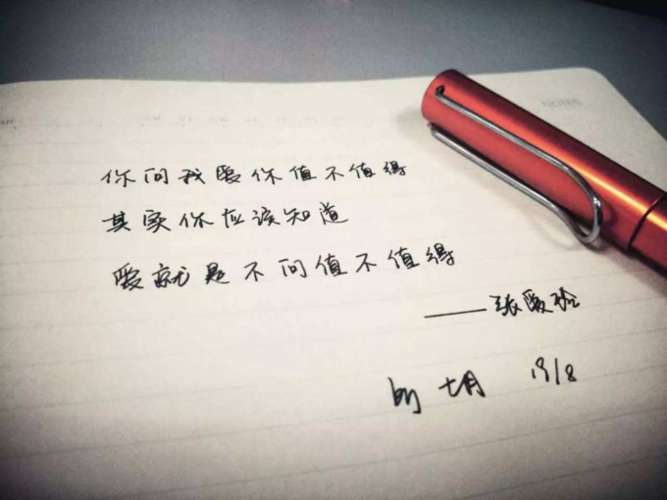 NOTES
你问我爱你值不值得
其实你应该知道
爱就是不问值不值得
——张爱玲
by 七月 19/8